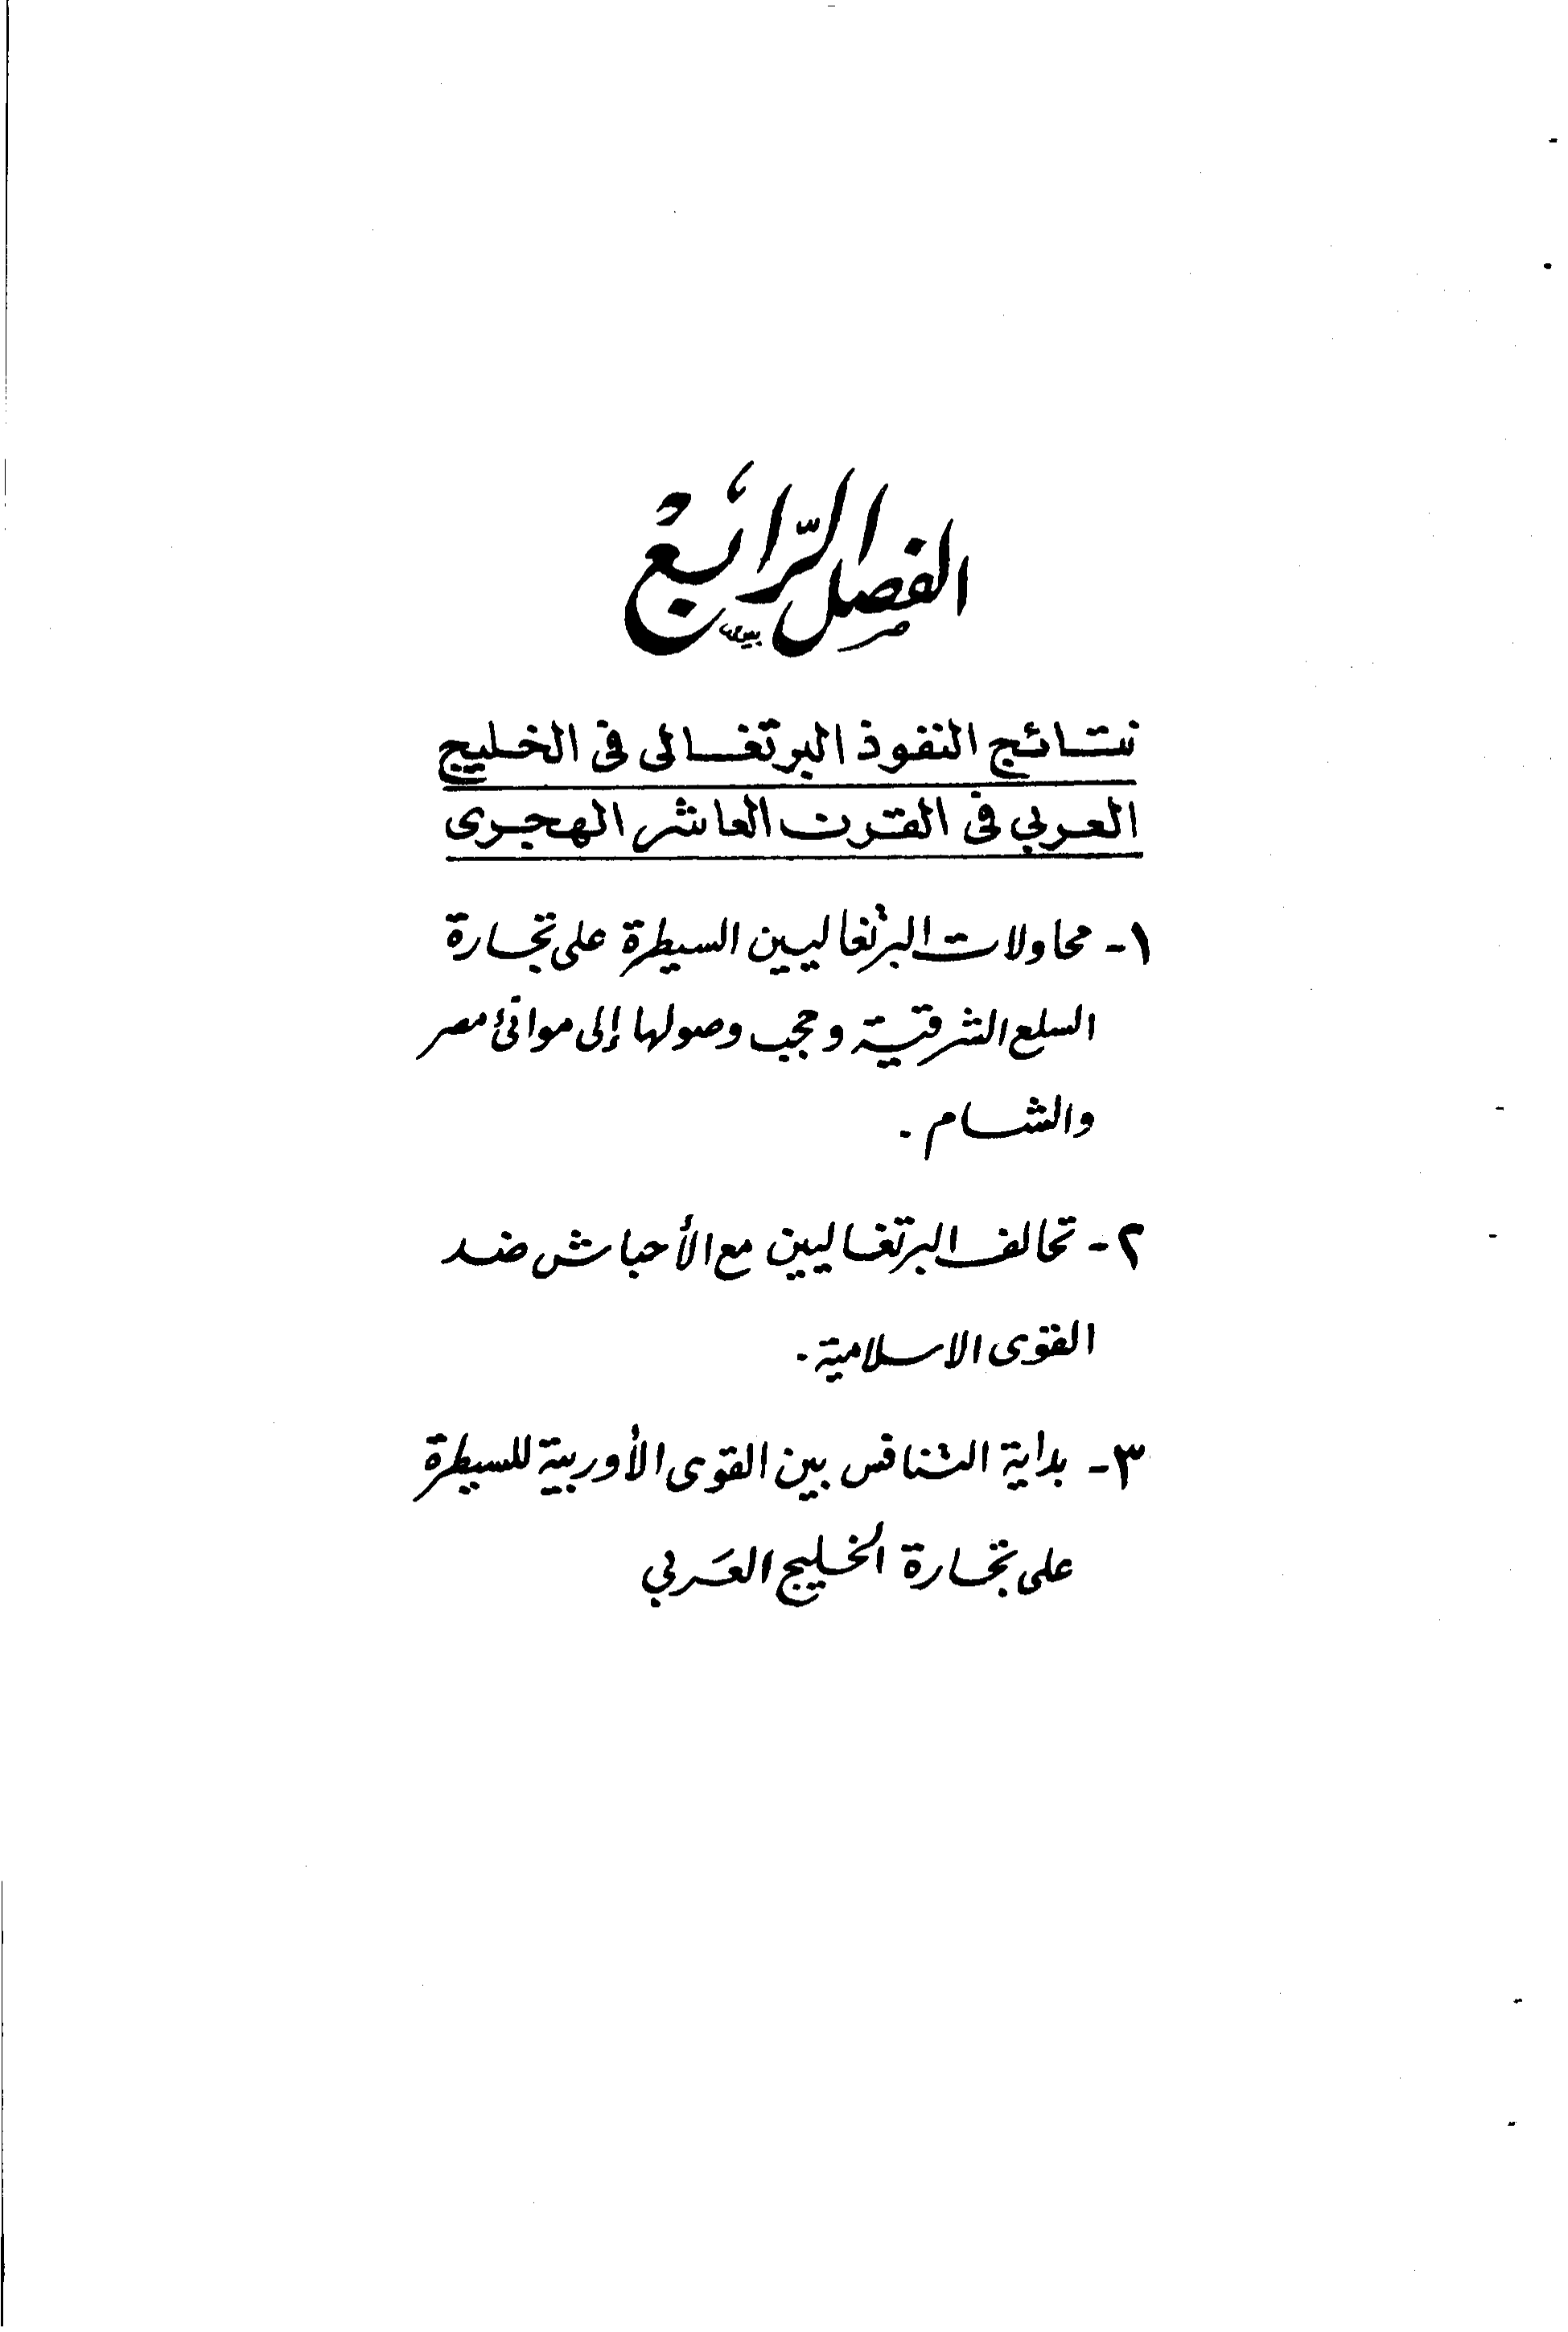 الفصل الرّابع
نتائج النفوذ البرتغالى فى الخليج
العربي فى القرن العاشر الهجرى
١- محاولات البرتغاليين السيطرة على تجارة
السلع الشرقية وحجب وصولها إلى موانئ مصر
والشام .
٢- تحالف البرتغاليين مع الأحباش ضد
القوى الاسلامية .
٣- بداية التنافس بين القوى الأوربية للسيطرة
على تجارة الخليج العَربي